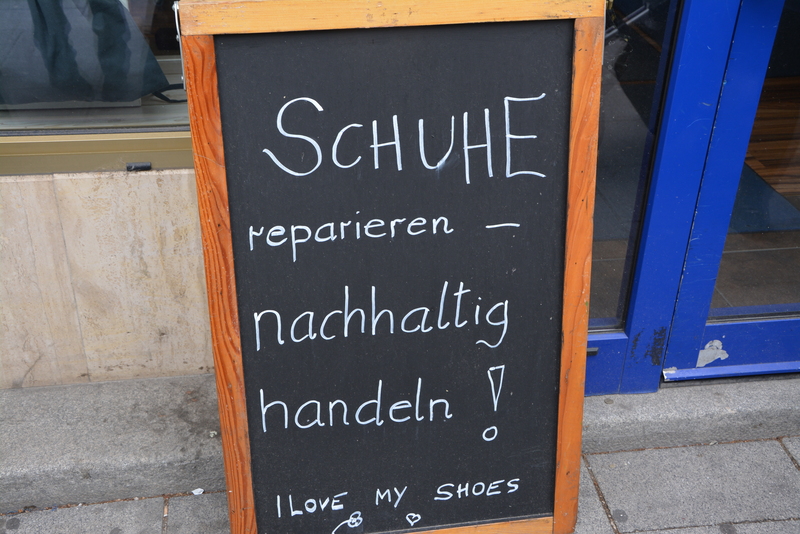 SCHUHE
reparieren –
nachhaltig
handeln !
I LOVE MY SHOES